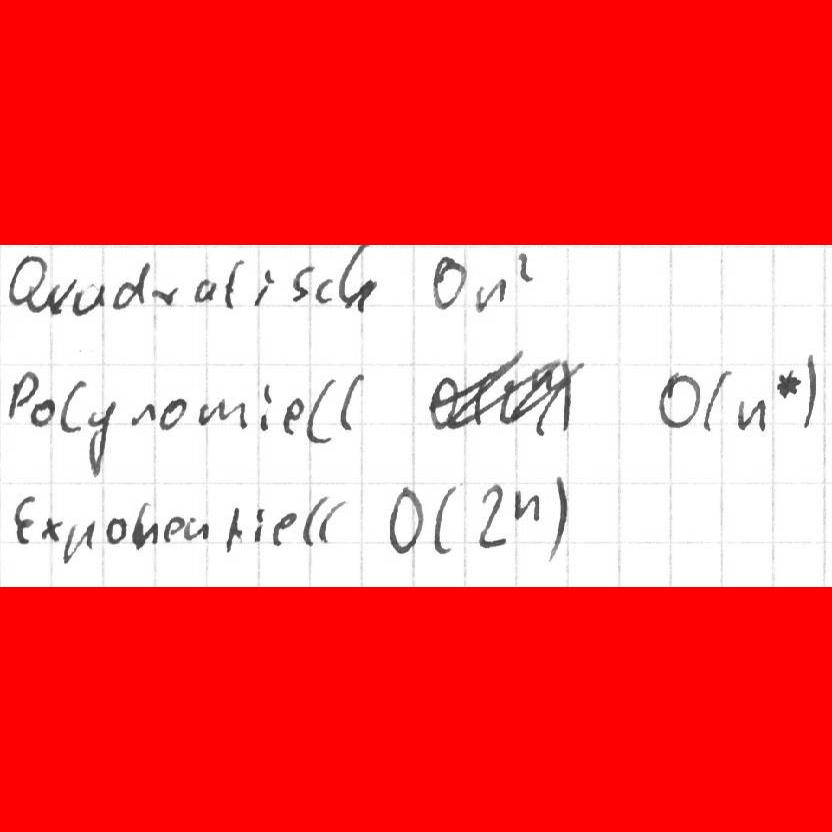 Quadratisch On²
Polynomiell O(n*)
Exponentiell O(2ⁿ)